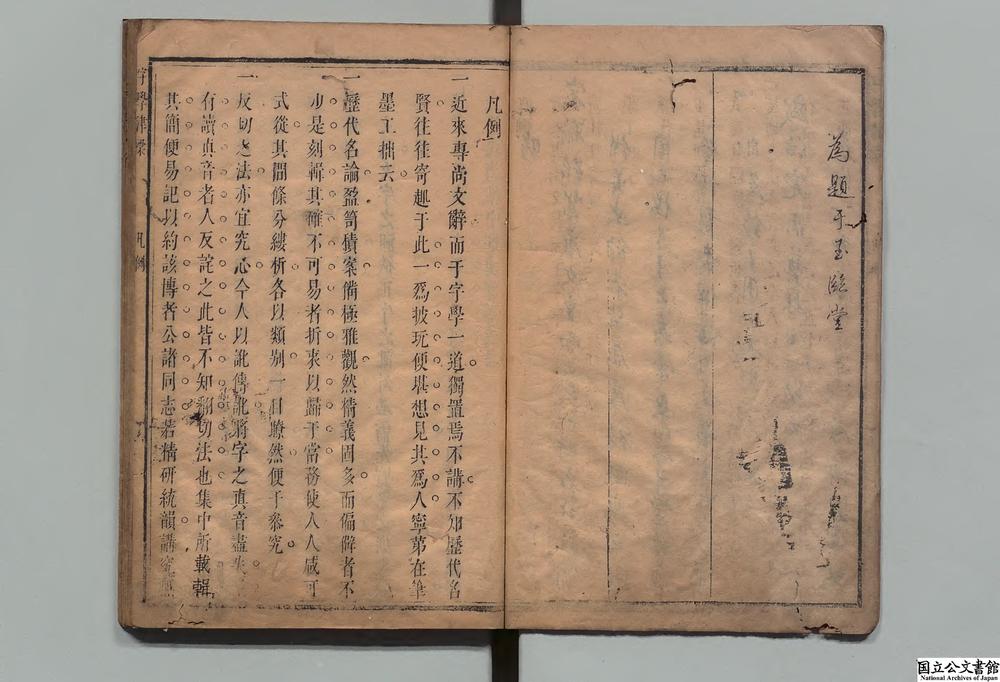 為題于玉臨堂
凡例
一近來專尚文辭而于字學一道獨置焉不講不知歷代名
賢往往寄趣于此一爲披玩便堪想見其爲人寧第在筆
墨工拙云
一歷代名論盈笥積案備極雅觀然精義固多而偏僻者不
少是刻輯其確不可易者折衷以歸于當務使人人咸可
式從其間條分縷析各以類別一目瞭然便于叅究
一反切之法亦宜究心今人以訛傳訛將字之真音盡失
有讀真音者人反詫之此皆不知翻切法也集中所載輯
其簡便易記以約該博者公諸同志若精研統韻講究
字學津梁
凡例
国立公文書館
National Archives of Japan